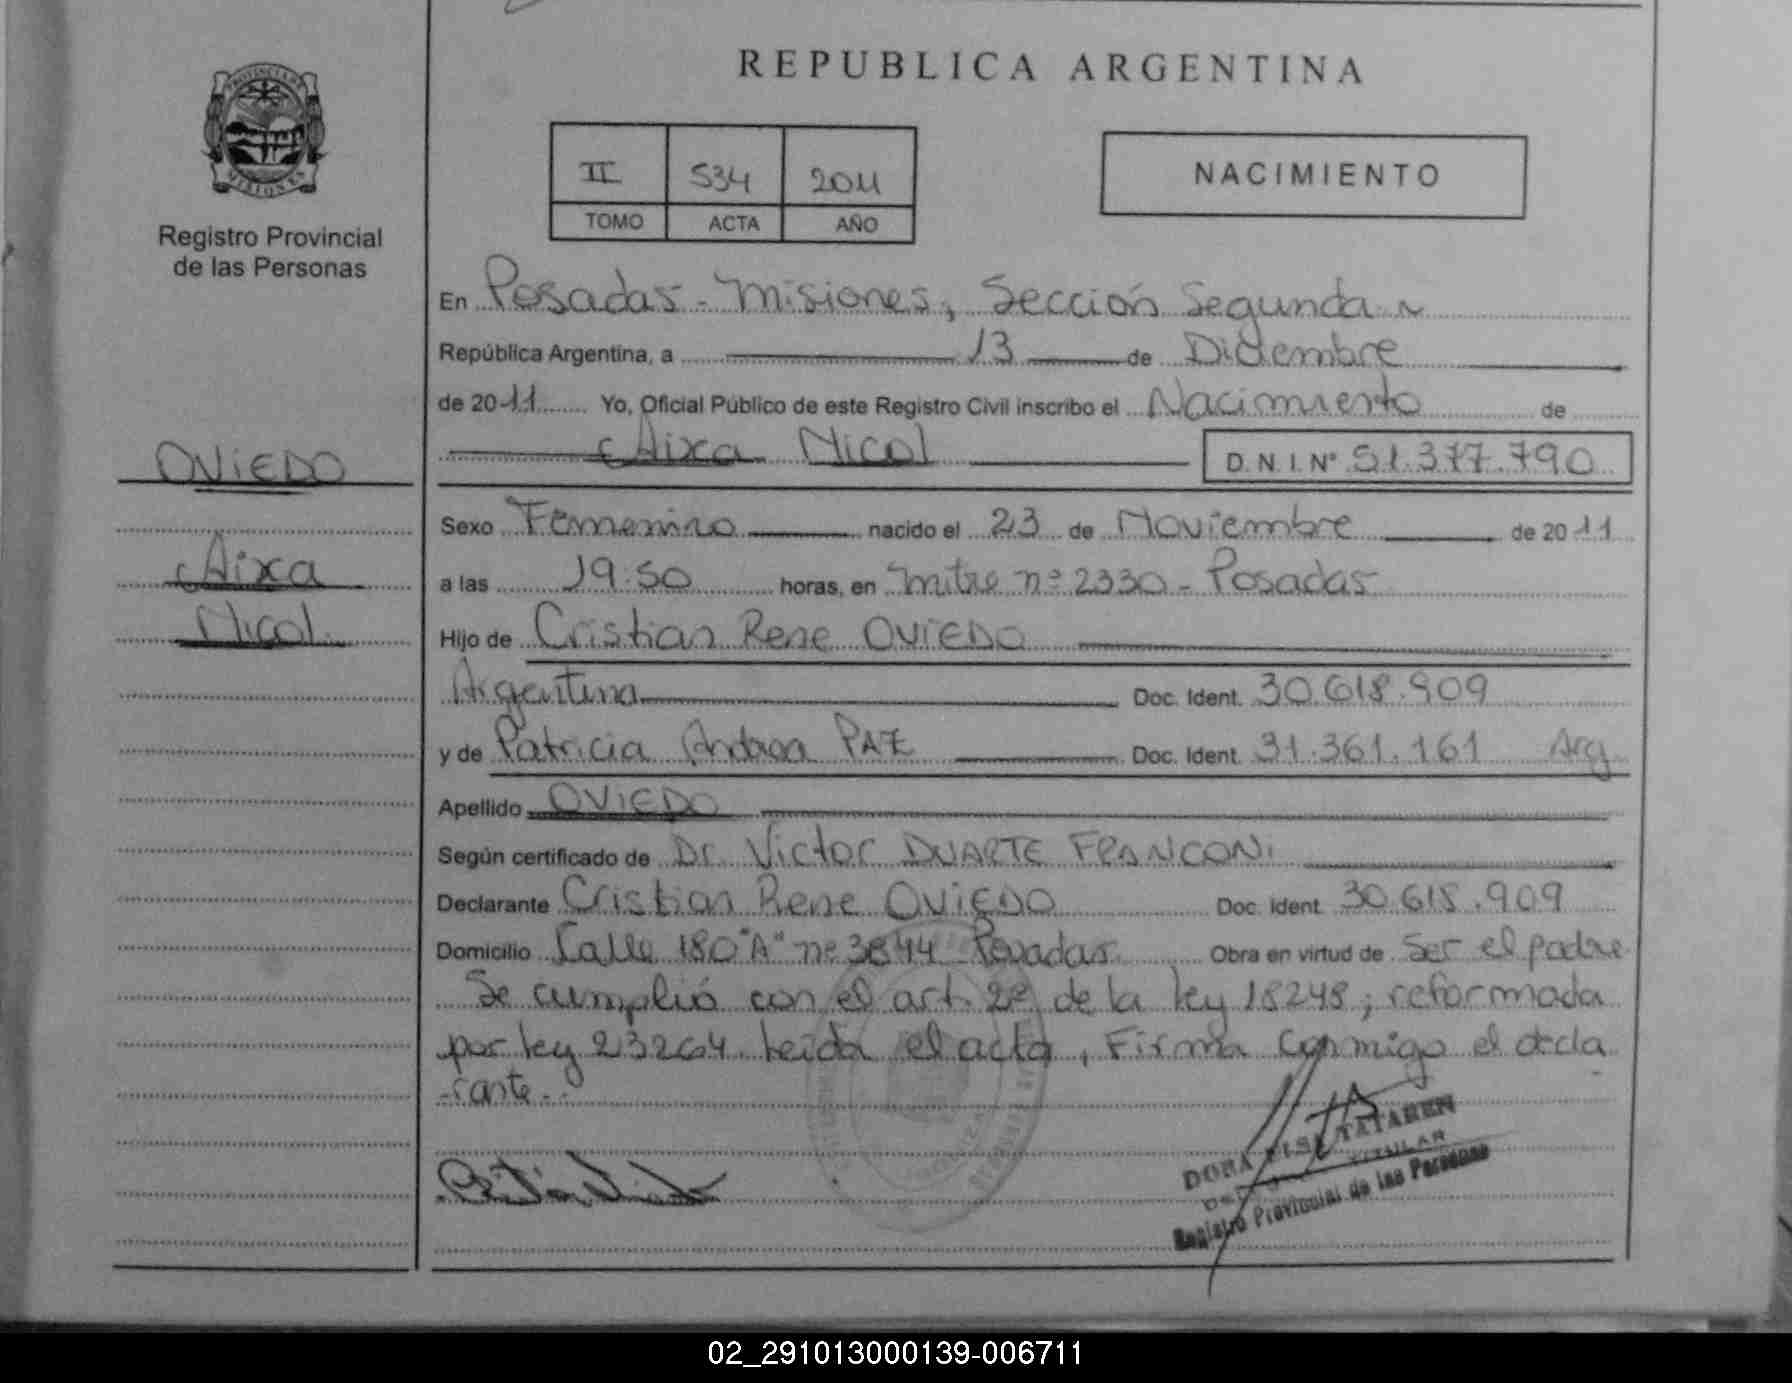 REPUBLICA ARGENTINA
PROVINCIA DE
MISIONES
Registro Provincial
de las Personas
II 534 2011
TOMO ACTA AÑO
NACIMIENTO
OVIEDO
Aixa
Nicol
En Posadas - Misiones, Sección Segunda
República Argentina, a 13 de Diciembre
de 2011 Yo, Oficial Público de este Registro Civil inscribo el Nacimiento de
Aixa Nicol D.N.I. N° 51.377.790
Sexo Femenino nacido el 23 de Noviembre de 2011
a las 19:50 horas, en Mitre nº 2330 - Posadas
Hijo de Cristian Rene OVIEDO
Argentina Doc. Ident. 30.618.909
y de Patricia Andrea PAZ Doc. Ident. 31.361.161 Arg.
Apellido OVIEDO
Según certificado de Dr. Victor DUARTE FRANCONI
Declarante Cristian Rene OVIEDO Doc. Ident. 30.618.909
Domicilio Calle 180 "A" nº 3844 Posadas Obra en virtud de Ser el padre
Se cumplió con el art. 2º de la ley 18248, reformada
por ley 23264. Leida el acta, Firma conmigo el decla
-rante.-
DORA ELSA TATAREN
TITULAR
Registro Provincial de las Personas
02_291013000139-006711